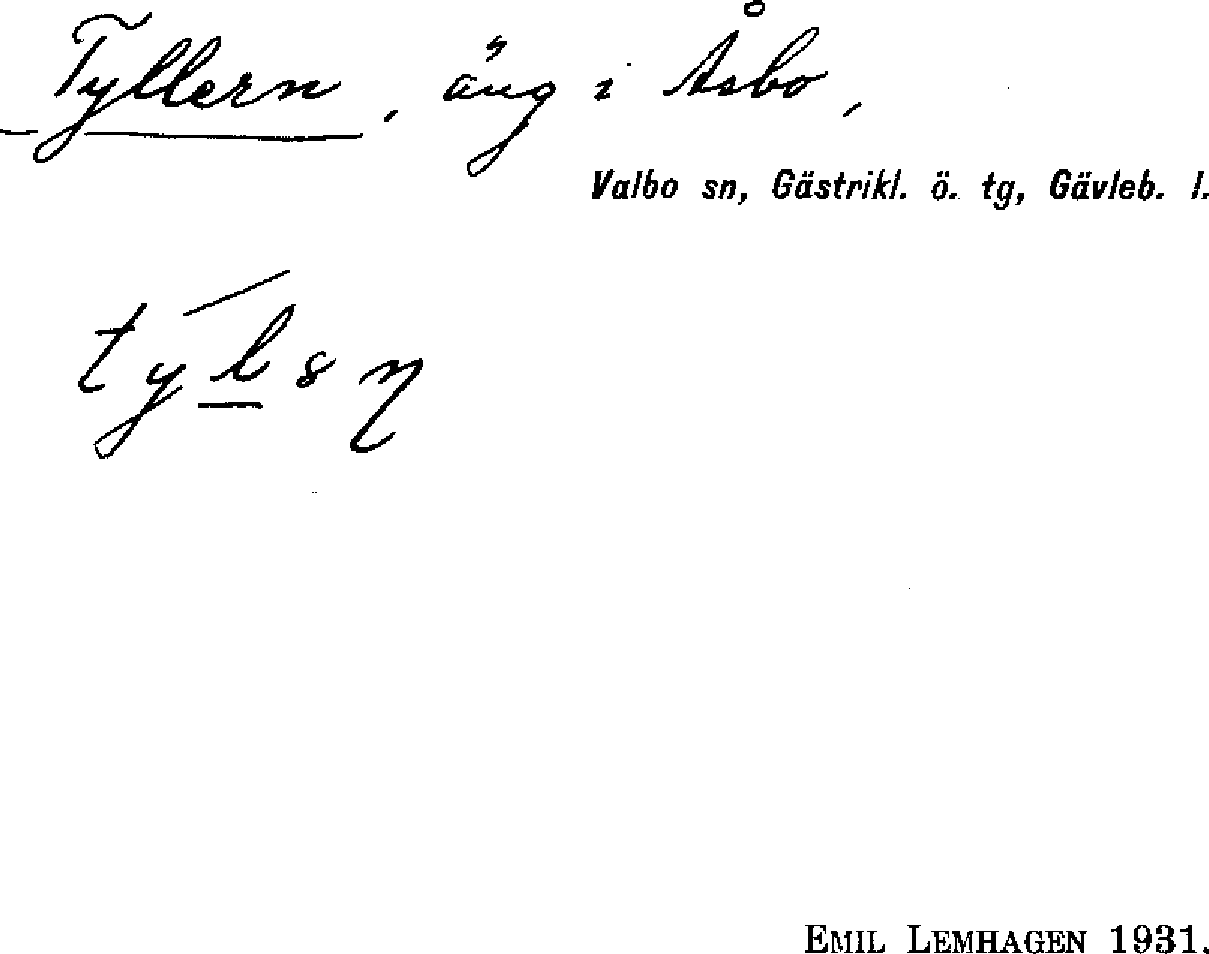 Tyllern, äng i Åsbo,
Valbo sn, Gästrikl. ö. tg, Gävleb. l.
EMIL LEMHAGEN 1931.